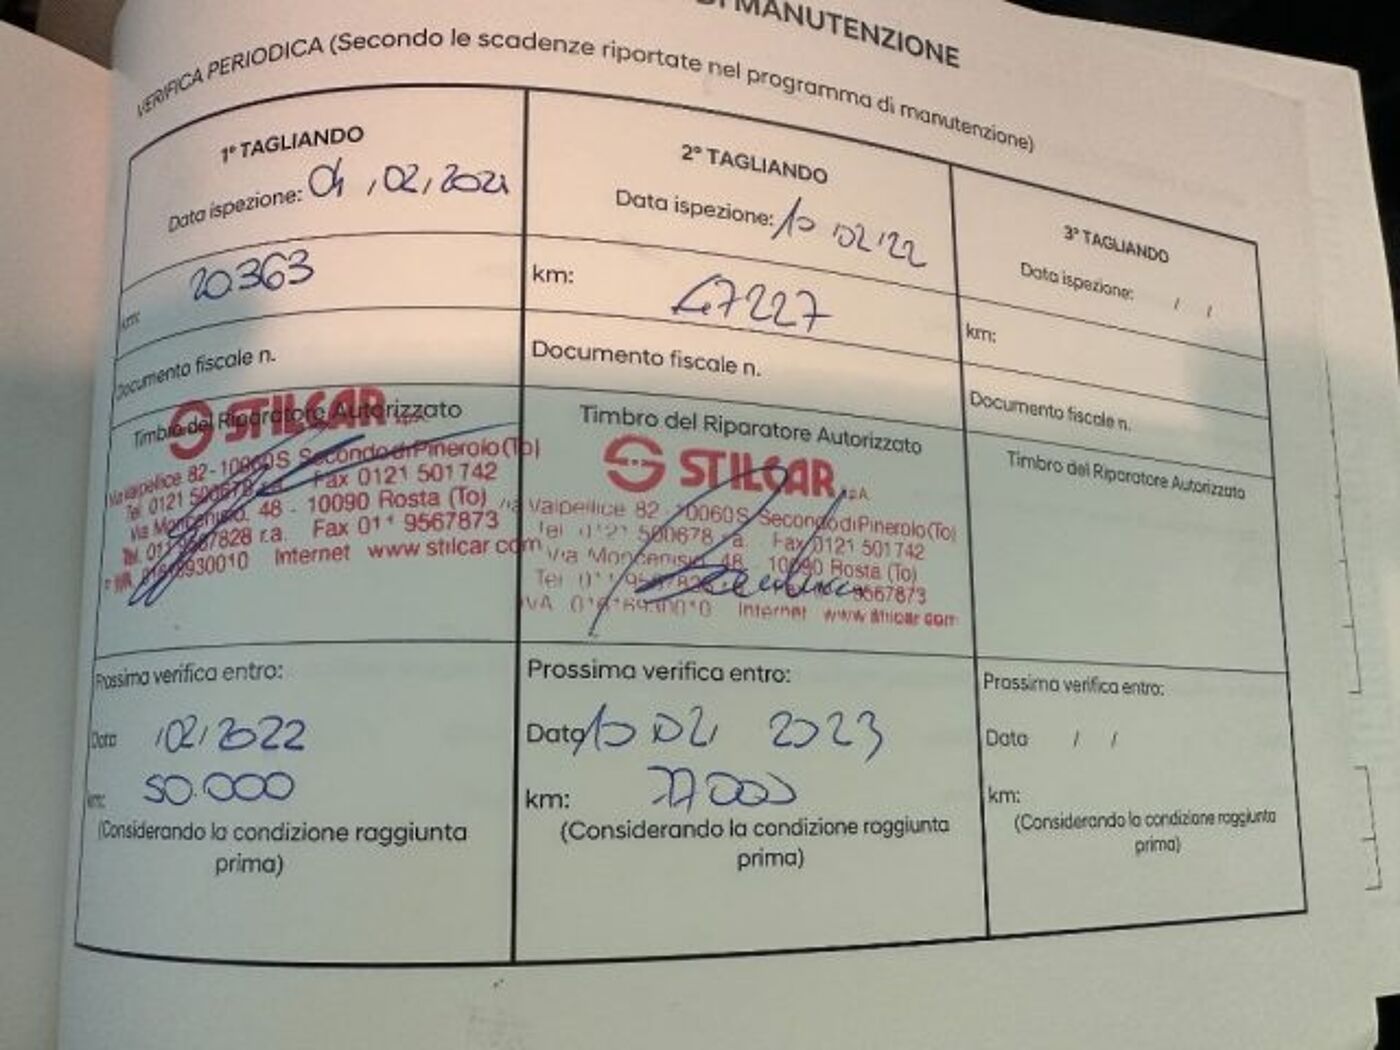 DI MANUTENZIONE
VERIFICA PERIODICA (Secondo le scadenze riportate nel programma di manutenzione)
1° TAGLIANDO
Data ispezione: 04,02,2021
km: 20.363
Documento fiscale n.
Timbro del Riparatore Autorizzato
STILCAR S.p.A.
Via Valpellice 82-10060 S Secondo di Pinerolo (To)
Tel 0121 500678 r.a. Fax 0121 501742
Via Moncenisio, 48 - 10090 Rosta (To)
Tel. 011 9567828 r.a. Fax 011 9567873
P. IVA 01616930010 Internet www stilcar com
Prossima verifica entro:
Data /02/2022
km: 50.000
(Considerando la condizione raggiunta
prima)
2° TAGLIANDO
Data ispezione: 10 02 22
km: 47227
Documento fiscale n.
Timbro del Riparatore Autorizzato
STILCAR S.p.A.
Via Valpellice 82 10060 S Secondo di Pinerolo (To)
Tel 0121 500678 r.a. Fax 0121 501742
Via Moncenisio 48 10090 Rosta (To)
Tel 011 9567828 9567873
IVA 01616930010 Internet www stilcar com
Prossima verifica entro:
Data 10 02 2023
km: 77000
(Considerando la condizione raggiunta
prima)
3° TAGLIANDO
Data ispezione: / /
km:
Documento fiscale n.
Timbro del Riparatore Autorizzato
Prossima verifica entro:
Data / /
km:
(Considerando la condizione raggiunta
prima)